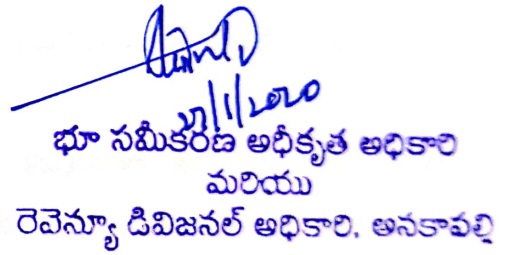 /1/2020
భూ సమీకరణ అధీకృత అధికారి
మరియు
రెవెన్యూ డివిజనల్ అధికారి, అనకాపల్లి